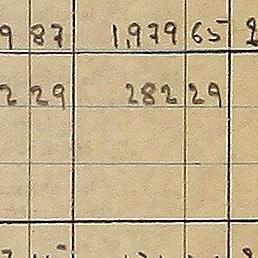 9 87 1,979 65
2 29 282 29